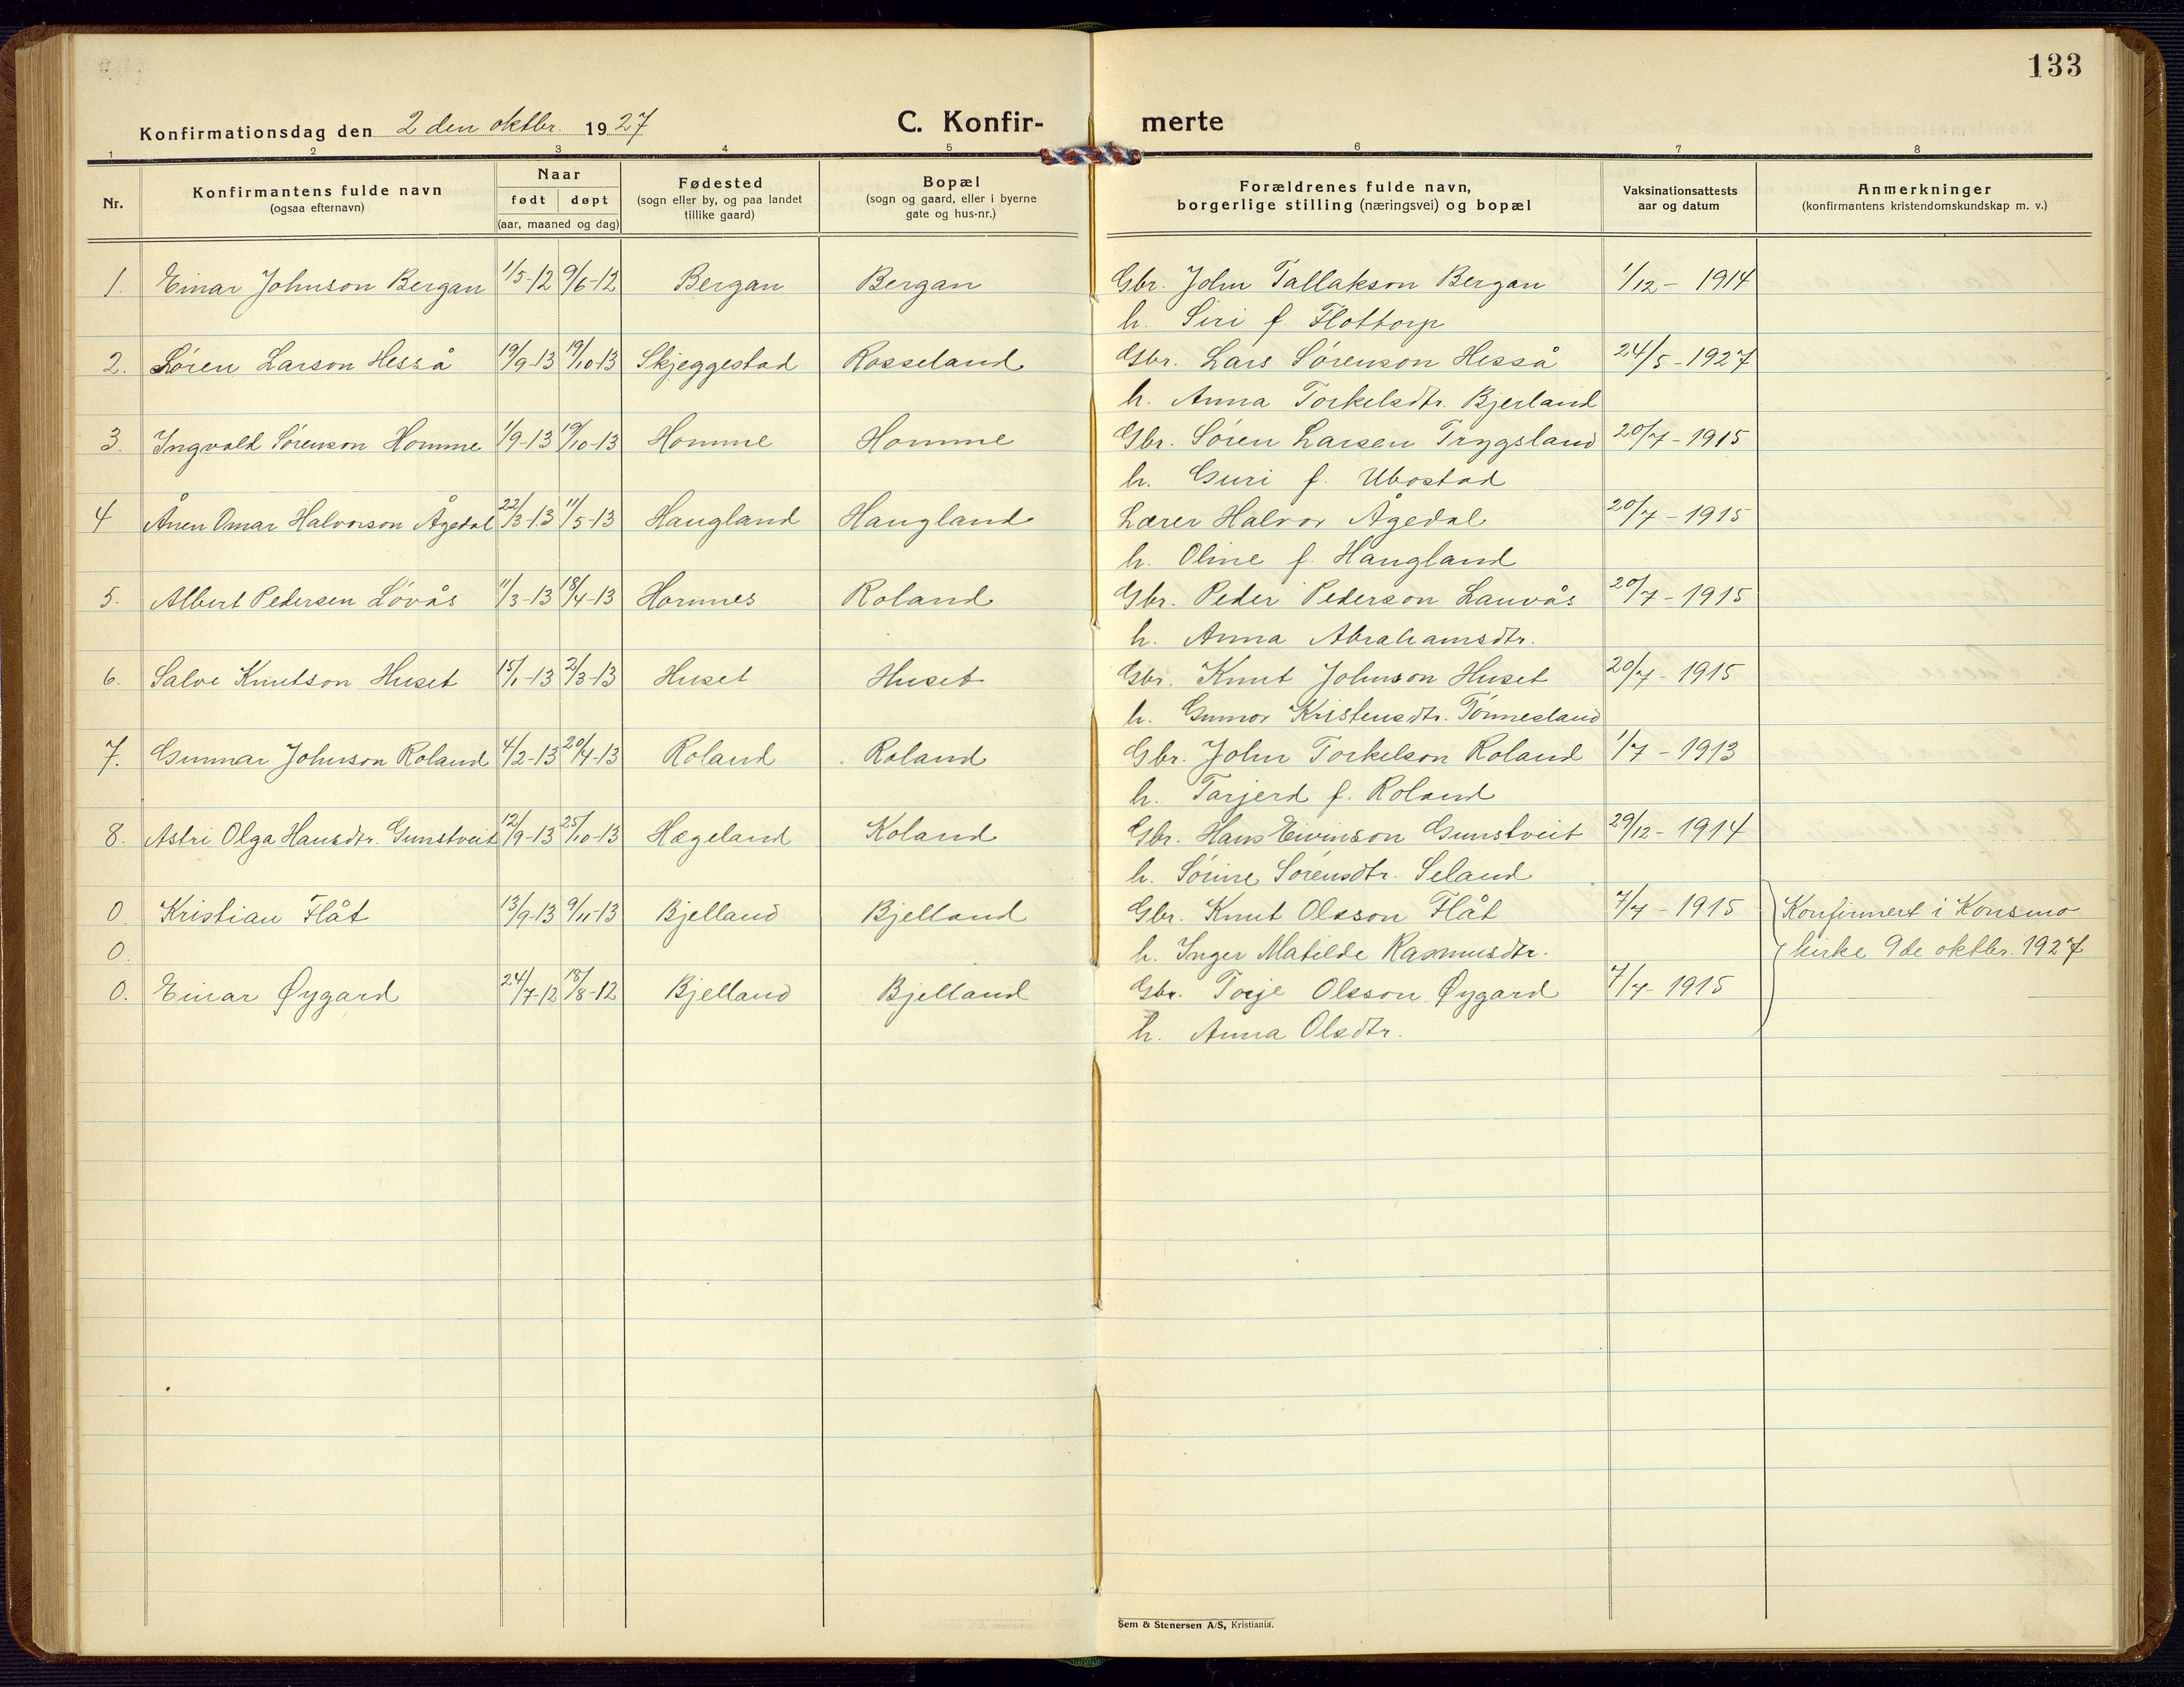 133
Konfirmationsdag den 2 den oktbr. 1927
C. Konfir- merte
1 2 3 4 5 6 7 8
Nr.
Konfirmantens fulde navn
(ogsaa efternavn)
Naar
født døpt
(aar, maaned og dag)
Fødested
(sogn eller by, og paa landet
tillike gaard)
Bopæl
(sogn og gaard, eller i byerne
gate og hus-nr.)
Forældrenes fulde navn,
borgerlige stilling (næringsvei) og bopæl
Vaksinationsattests
aar og datum
Anmerkninger
(konfirmantens kristendomskundskap m. v.)
1. Einar Johnson Bergan 1/5-12 9/6-12 Bergan Bergan Gbr. John Tallakson Bergan 1/12 - 1914
h. Siri f. Flottorp
2. Søren Larson Hesså 19/9-13 19/10-13 Skjeggestad Rosseland Gbr. Lars Sørenson Hesså 24/5-1927
h. Anna Torkelsdtr. Bjerland
3. Ingvald Sørenson Homme 1/9-13 19/10-13 Homme Homme Gbr. Søren Larsen Trygsland 20/7-1915
h. Guri f. Ubostad
4 Ånen Omar Halvorson Ågedal 22/3-13 11/5-13 Haugland Haugland Lærer Halvor Ågedal 20/7-1915
h. Oline f. Haugland
5. Albert Pedersen Løvås 11/3-13 18/4-13 Hornnes Roland Gbr. Peder Pederson Lauvås 20/7-1915
h. Anna Abrahamsdtr.
6. Salve Knutson Huset 15/1-13 2/3-13 Huset Huset Gbr. Knut Johnson Huset 20/7-1915
h. Gunvor Kristensdtr. Tønnesland
7. Gunnar Johnson Roland 4/2-13 20/4-13 Roland Roland Gbr. John Torkelson Roland 1/7-1913
h. Tarjerd f. Roland
8. Astri Olga Hansdtr. Gunstveit 12/9-13 25/10-13 Hægeland Koland Gbr. Hans Eivinson Gunstveit 29/12-1914
h. Sørine Sørensdtr. Seland
0. Kristian Flåt 13/9-13 9/11-13 Bjelland Bjelland Gbr. Knut Olsson Flåt 7/7-1915 Konfirmert i Konsmo
0. h. Inger Matilde Rasmusdtr. kirke 9de oktbr. 1927
0. Einar Øygard 24/7-12 18/8-12 Bjelland Bjelland Gbr. Torje Olsson Øygard 7/7-1915
h. Anna Olsdtr.
Sem & Stenersen A/S, Kristiania.